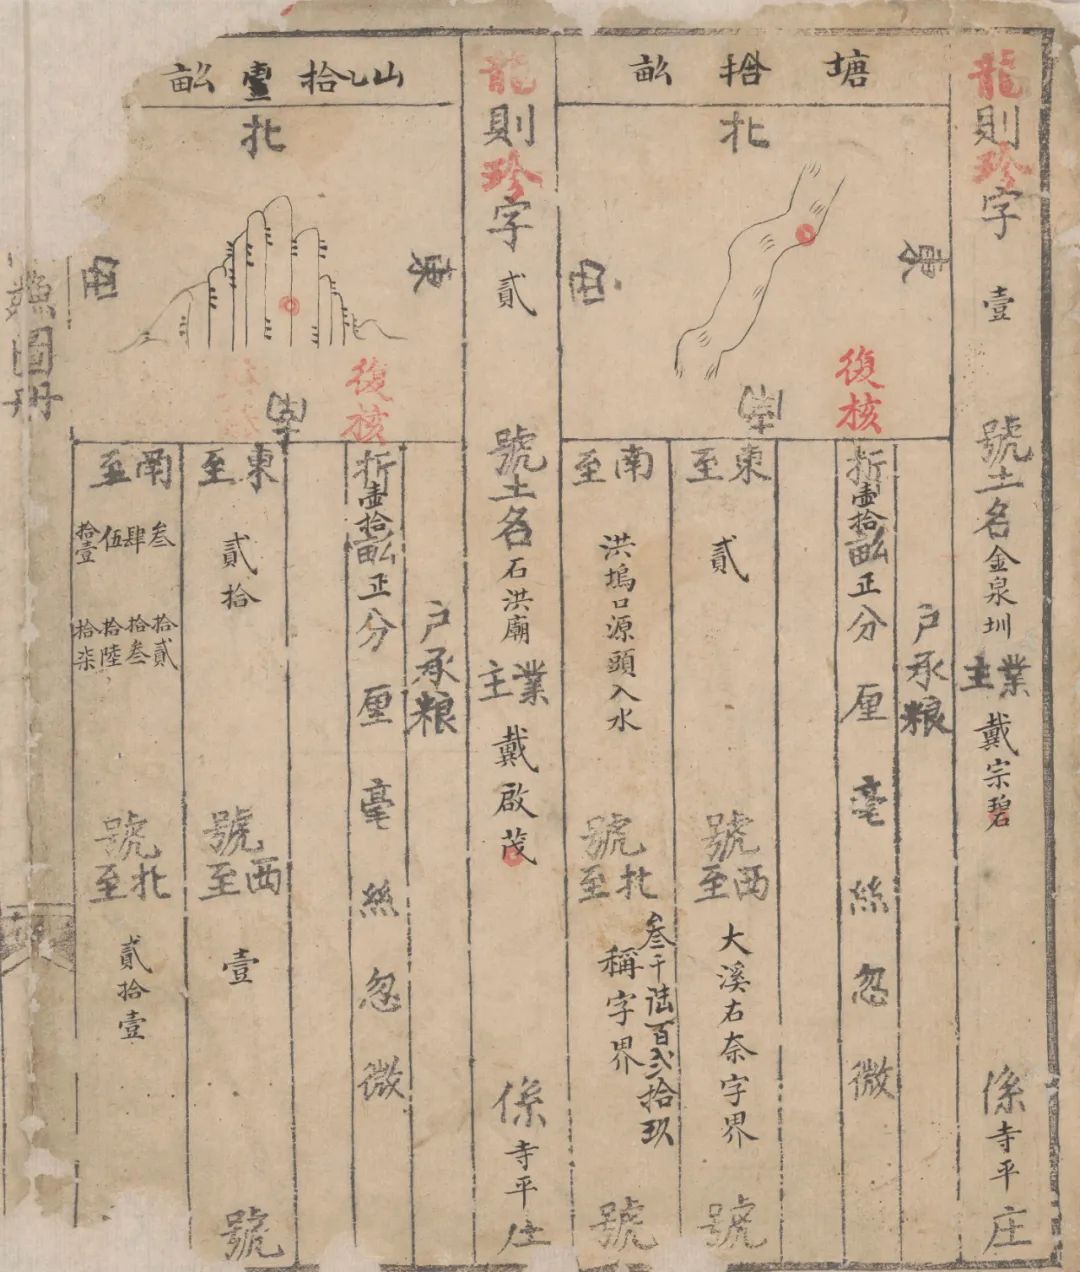 龍則珍字壹號土名金泉圳業主戴宗碧係寺平庄
塘拾畝
北
東
西
南
復核
户承粮
折壹拾畝正分厘毫絲忽微
東至貳號
西至大溪右奈字界號
南至洪塢口源頭入水號
北至叁千陆百弍拾玖稱字界號
龍則珍字貳號土名石洪廟業主戴啟茂係寺平庄
山乚拾壹畝
北
東
西
南
復核
户承粮
折壹拾畝正分厘毫絲忽微
東至貳拾號
西至壹號
南至叁肆伍拾壹拾貳拾叁拾陸拾柒號
北至貳拾壹
魚
圖
冊